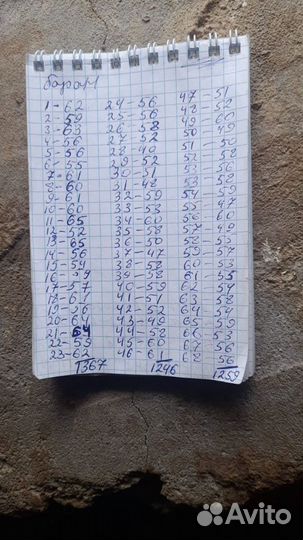 баран
1 - 62
2 - 59
3 - 63
4 - 56
5 - 56
6 - 55
7 - 61
8 - 60
9 - 61
10 - 60
11 - 65
12 - 52
13 - 65
14 - 56
15 - 54
16 - 59
17 - 57
18 - 61
19 - 56
20 - 64
21 - 64
22 - 59
23 - 62
1367
24 - 56
25 - 56
26 - 58
27 - 52
28 - 49
29 - 52
30 - 51
31 - 48
32 - 59
33 - 53
34 - 60
35 - 58
36 - 50
37 - 47
38 - 53
39 - 58
40 - 59
41 - 51
42 - 52
43 - 49
44 - 54
45 - 60
46 - 61
1246
47 - 51
48 - 58
49 - 60
50 - 49
51 - 50
52 - 58
53 - 56
54 - 59
55 - 59
56 - 60
57 - 49
58 - 55
59 - 57
60 - 53
61 - 55
62 - 54
63 - 58
64 - 54
65 - 59
66 - 53
67 - 56
68 - 56
1259
Avito